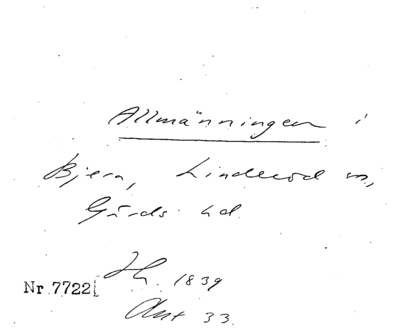 Allmänningen i
Bjern, Linderöd sn,
Gärds hd.
1839
Nr 7722
Akt 33.